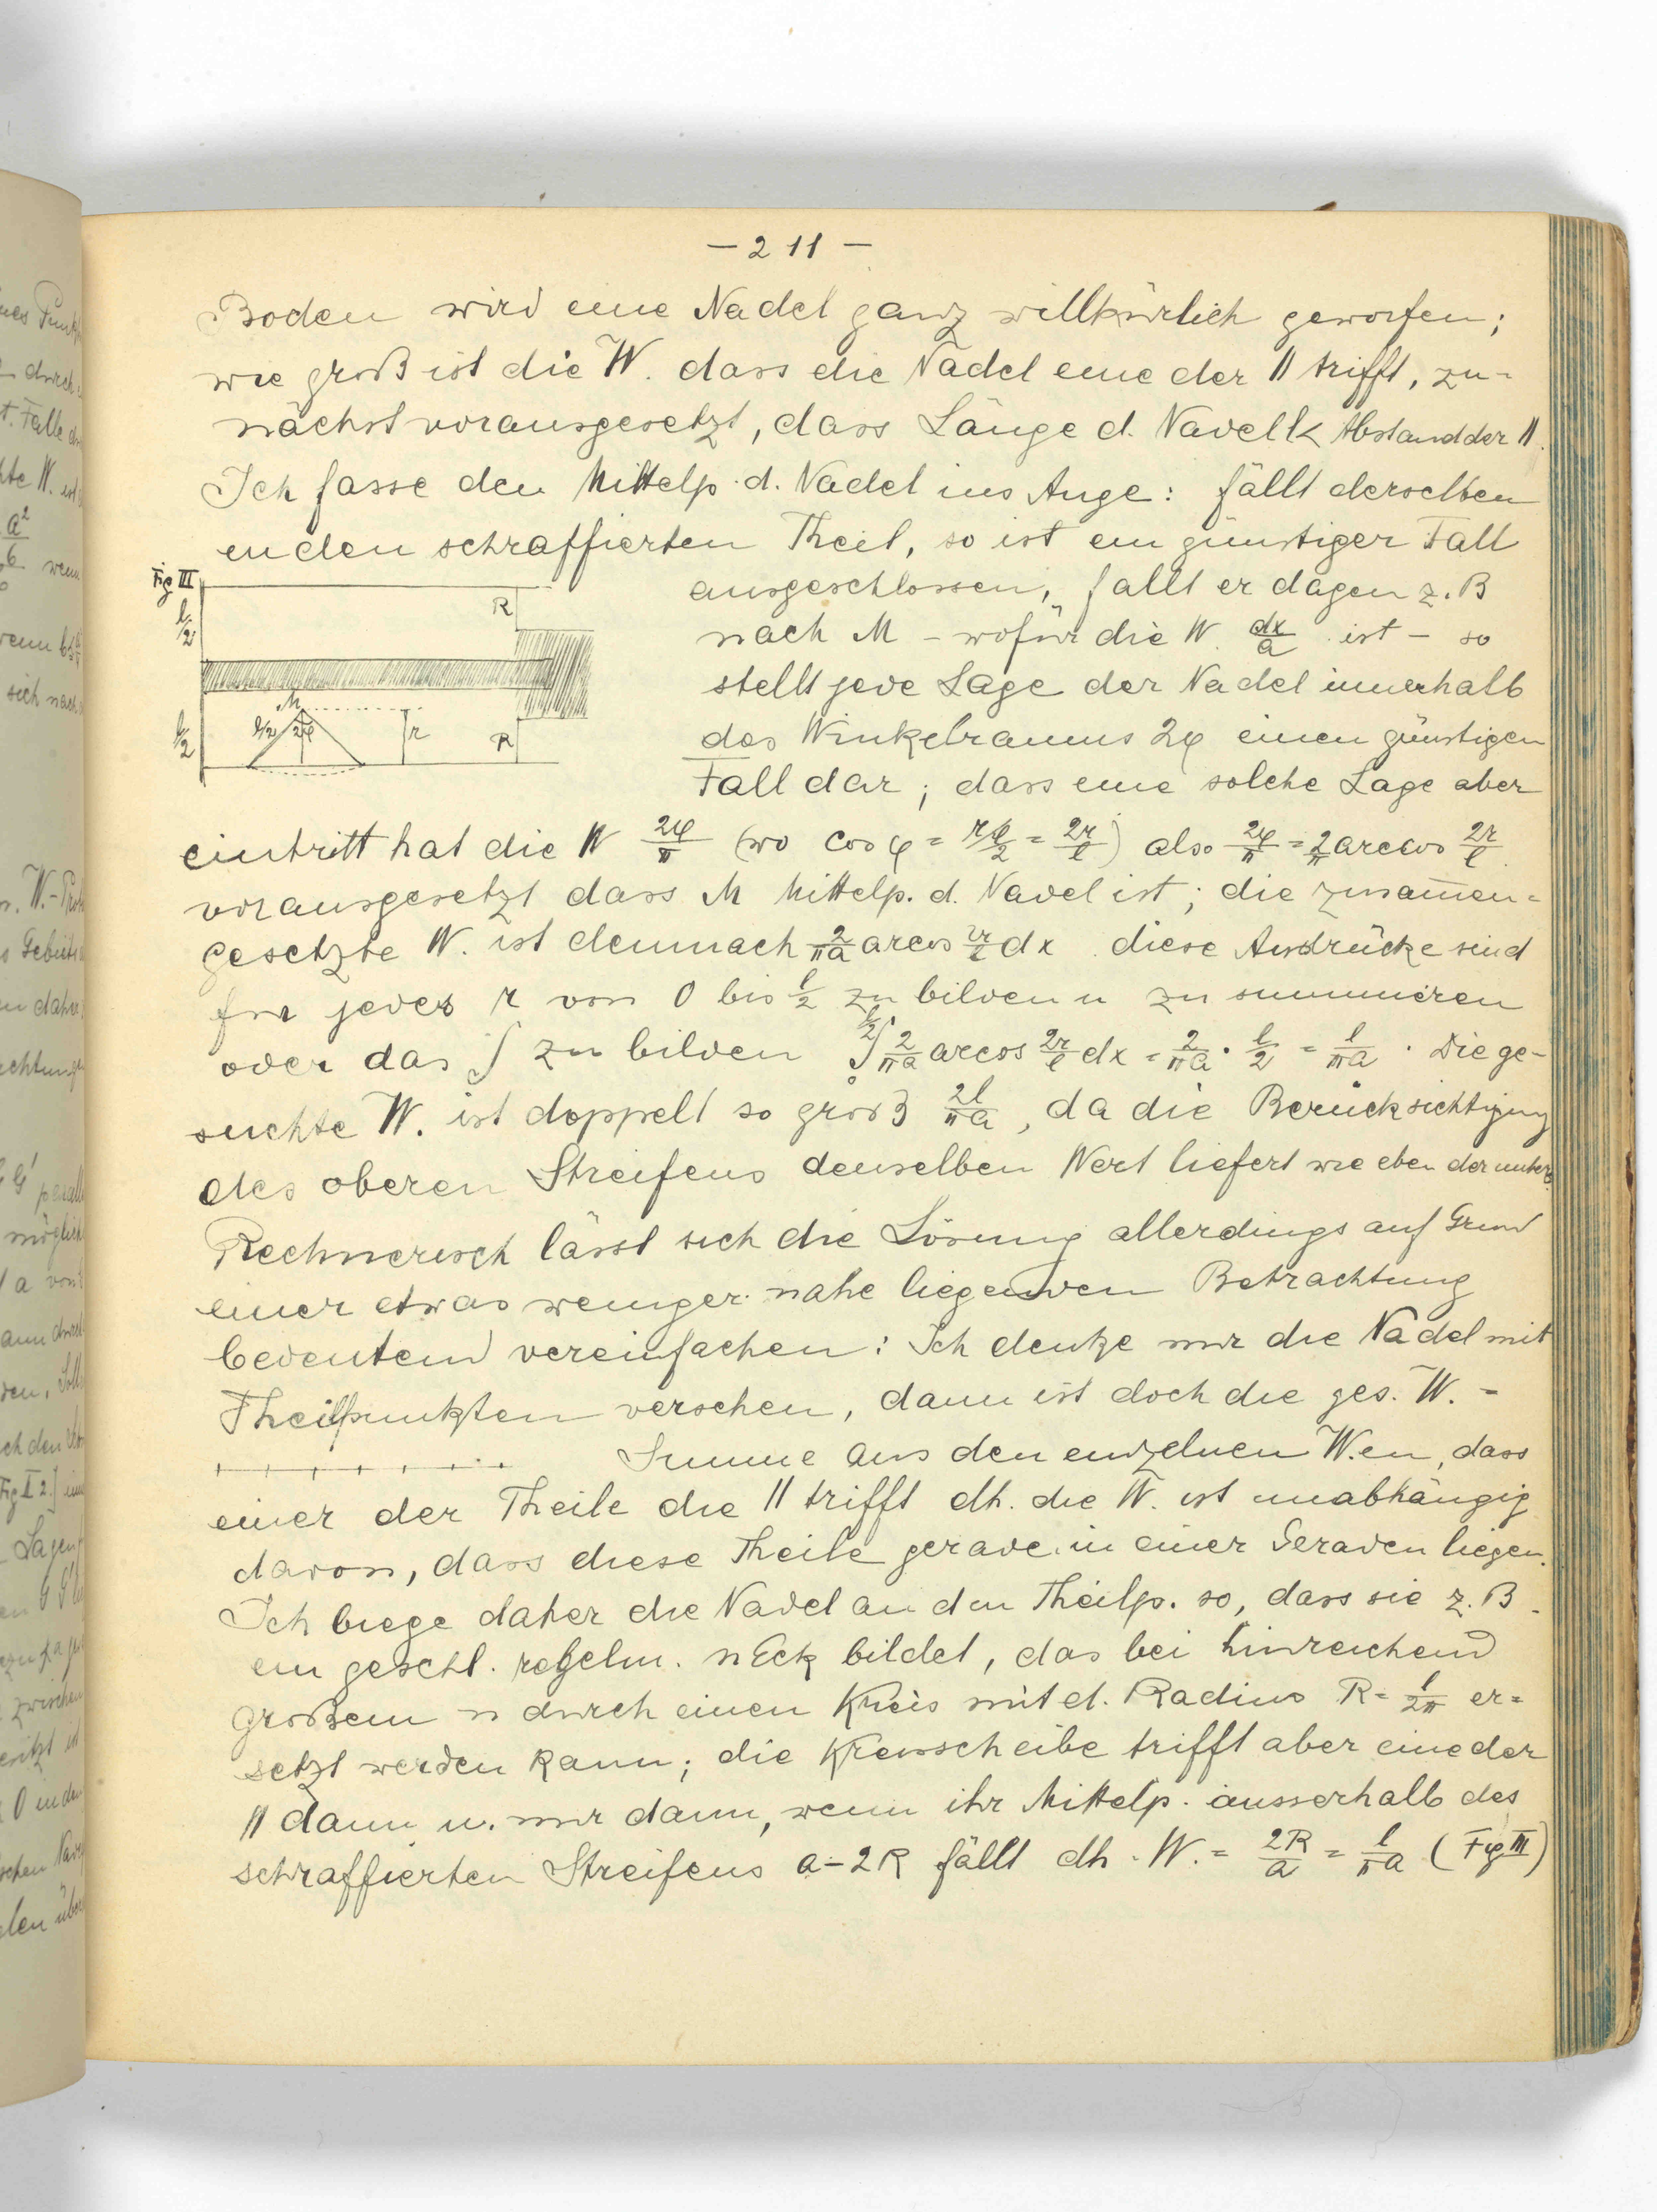 — 211 —
Boden wird eine Nadel ganz willkürlich geworfen;
wie groß ist die W. dass die Nadel eine der || trifft, zu-
nächst vorausgesetzt, dass Länge d. Nadel l < Abstand der ||.
Ich fasse den Mittelp. d. Nadel ins Auge: fällt derselben
in den schraffierten Theil, so ist ein günstiger Fall
Fig III
ausgeschlossen, fallt er dagen z. B
nach M – wofür die W. dx/a ist – so
stellt jede Lage der Nadel innerhalb
des Winkelraums 2φ einen günstigen
Fall dar; dass eine solche Lage aber
l/2
R
M
l/2
2φ
r
R
l/2
eintritt hat die W 2φ/π (wo cos φ = r/l/2 = 2r/l) also 2φ/π = 2/π arccos 2r/l
vorausgesetzt dass M Mittelp. d. Nadel ist; die zusam̄en=
gesetzte W. ist demnach 2/πa arcos 2r/l dx. diese Ausdrücke sind
für jedes r von 0 bis l/2 zu bilden u zu summieren
oder das ∫ zu bilden ∫₀^l/2 2/πa arcos 2r/l dx = 2/πa · l/2 = l/πa. Die ge-
suchte W. ist doppelt so groß 2l/πa, da die Berücksichtigung
des oberen Streifens denselben Wert liefert wie eben der untere
Rechnerisch lässt sich die Lösung allerdings auf Grund
einer etwas weniger nahe liegenden Betrachtung
bedeutend vereinfachen: Ich denke mir die Nadel mit
Theilpunkten versehen, dann ist doch die ges. W. =
Summe aus den einzelnen W.en, dass
einer der Theile die || trifft dh. die W. ist unabhängig
davon, dass diese Theile gerade in einer Geraden liegen.
Ich biege daher die Nadel an den Theilp. so, dass sie z. B.
ein geschl. regelm. n Eck bildet, das bei hinreichend
großem n durch einen Kreis mit d. Radius R = l/2π er=
setzt werden kann; die Kreisscheibe trifft aber eine der
|| dann u. nur dann, wenn ihr Mittelp. ausserhalb des
schraffierten Streifens a–2R fällt dh. W. = 2R/a = l/πa (Fig III)